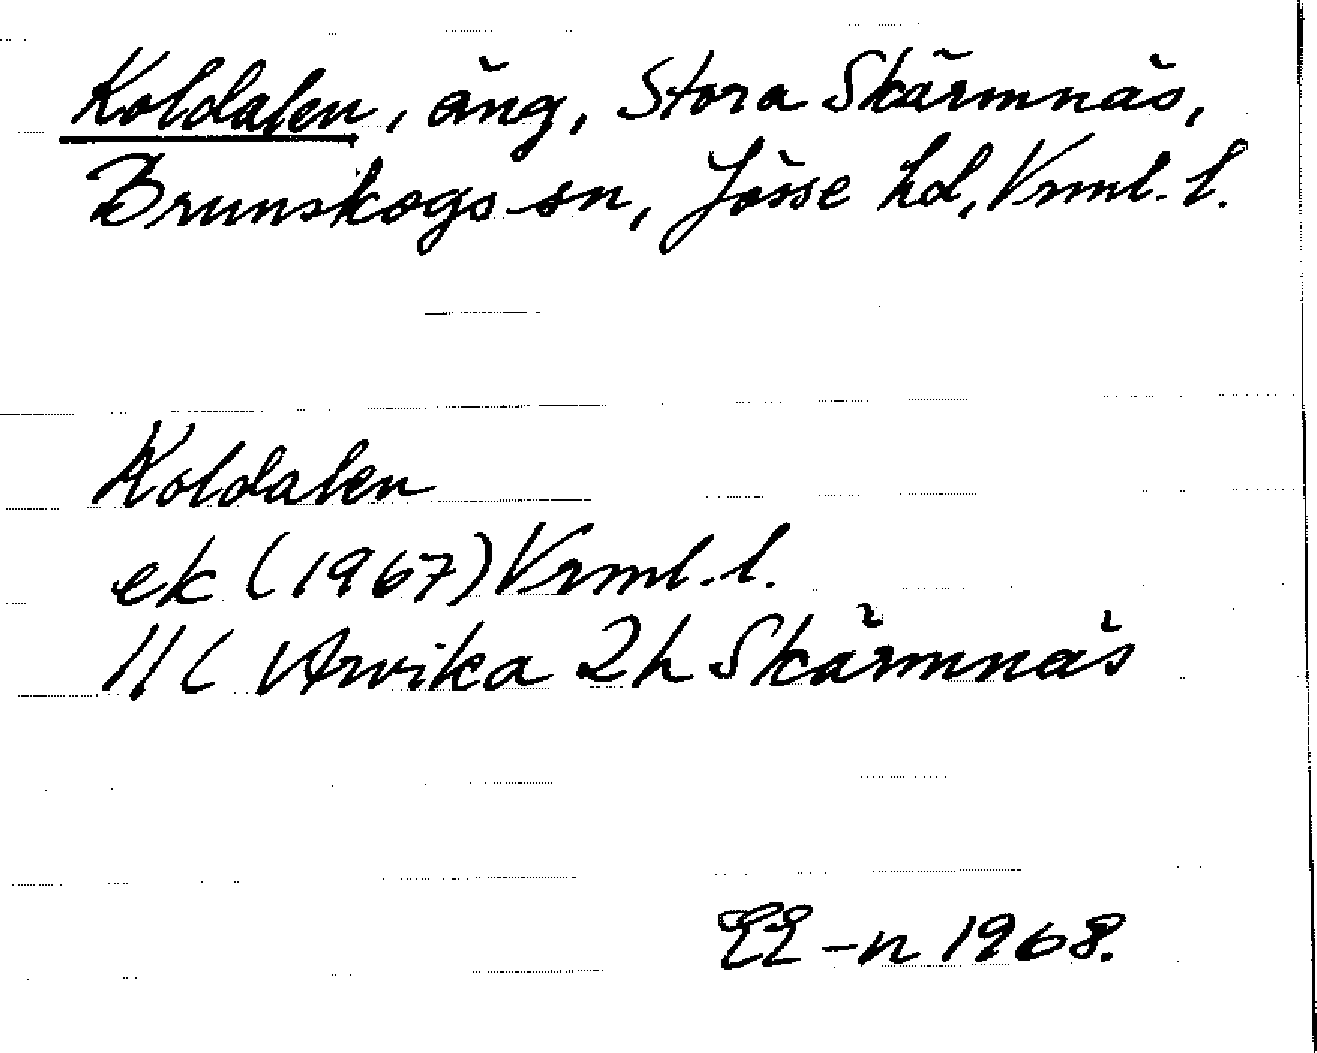 Koldalen, äng, Stora Skärmnäs,
Brunskogs sn, Jösse hd, Vrml. l.
Koldalen
ek (1967) Vrml. l.
11C Arvika 2h Skärmnäs
EE-n 1968.